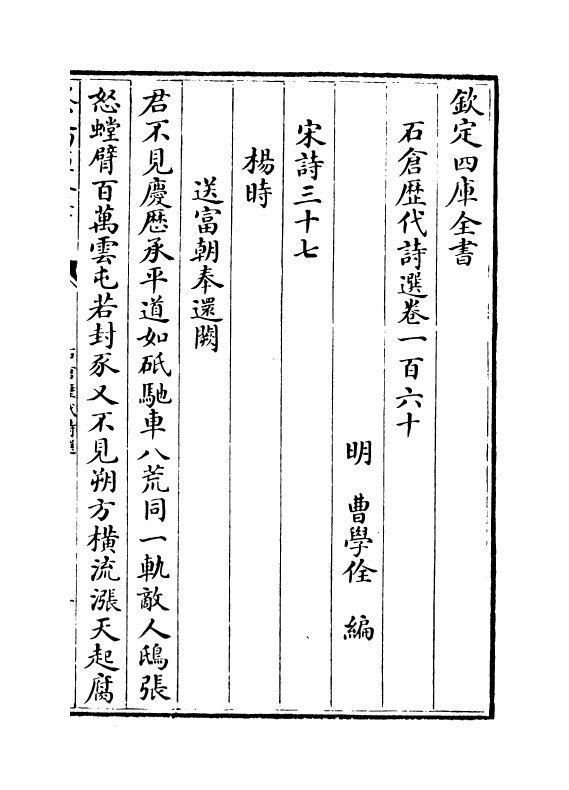 欽定四庫全書
石倉歷代詩選卷一百六十
明　曹學佺　編
宋詩三十七
楊時
送富朝奉還闕
君不見慶歴承平道如砥馳車八荒同一軌敵人鴟張
怒螳臂百萬雲屯若封豕又不見朔方橫流漲天起腐
石倉歷代詩選